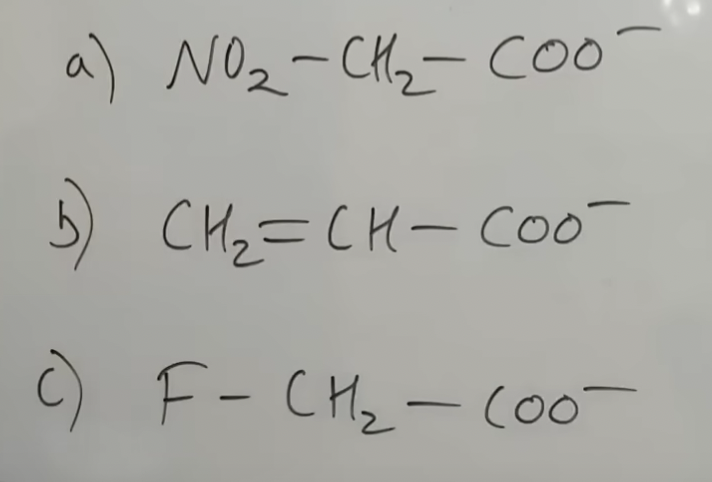 a) NO₂-CH₂-COO⁻
b) CH₂=CH-COO⁻
c) F-CH₂-COO⁻